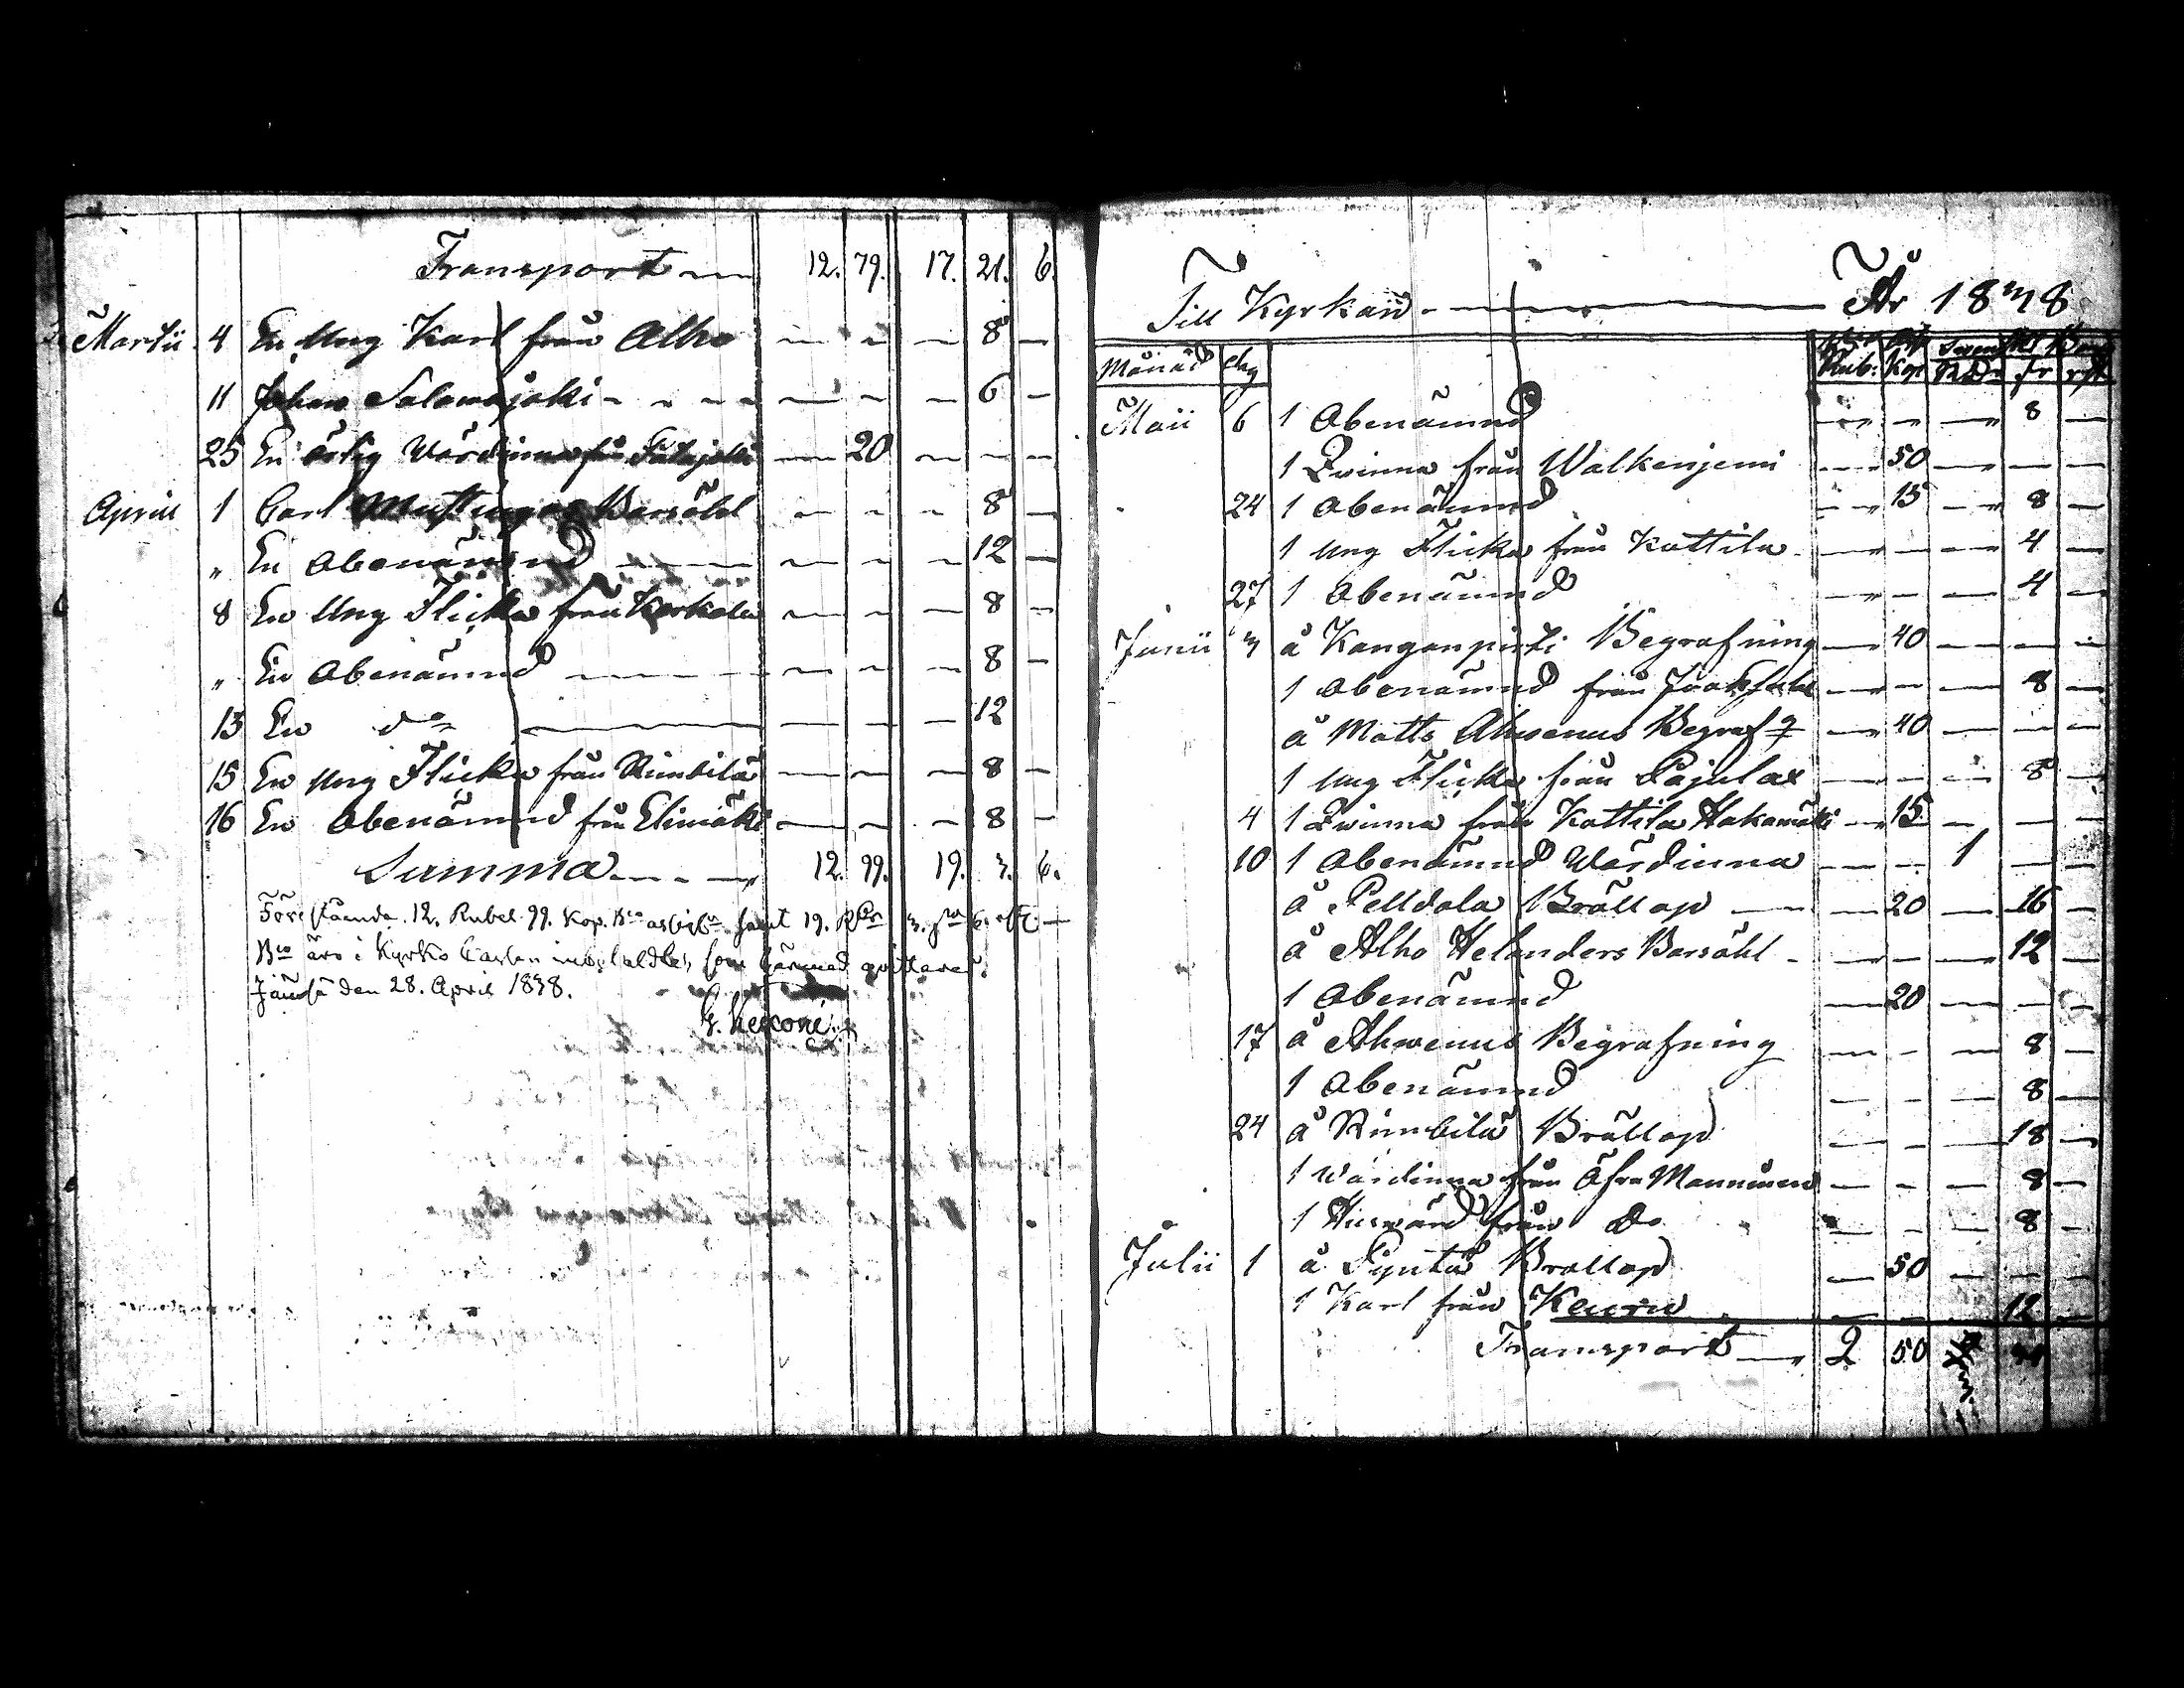 Transport 12. 79. 17. 21. 6.
Martii 4 En Ung Karl från Alho — — — 8 —
11 Johan Salomajoki — — — 6 —
25 En ärlig Wärdinna från — 20 — — —
Aprill 1 Carl Barsöhl — — — 8 —
" En Obenämnd — — — 12 —
8 En Ung Flicka från Kerkola — — — 8 —
" En Obenämnd — — — 8 —
13 En do — — — 12
15 En Ung Flicka från Rimbilä — — — 8 —
16 En Obenämnd från Elimäki — — — 8 —
Summa 12. 99. 19. 3. 6.
Föreståenda 12. Rubel 99. Kop. Bco samt 19. RDr 3. 6. —
Bco äro i Kyrko Cassan som härmed qvitteras.
Jämsä den 28. April 1838.
Till Kyrkan År 1838
Månad dag Rub: Kop
Maii 6 1 Obenämnd — — — 8 —
1 Qvinna från Walkenjemi — 50 — — —
24 1 Obenämnd — 15 — 8 —
1 Ung Flicka från Kottila — — — 4 —
27 1 Obenämnd — — — 4 —
Junii 3 å Kanganpirti Begrafning — 40 — — —
1 Obenämnd från — — — 8 —
å Matts Ahvenus Begrafg — 40 — — —
1 Ung Flicka från Pajulax — — — 8 —
4 1 Qvinna från Kottila Hakamäki — 15 — — —
10 1 Obenämnd Wärdinna — — 1 — —
å Pelldola Bröllop — 20 — 16 —
å Alho Helanders Barsöhl — — — 12 —
1 Obenämnd — 20 — — —
17 å Ahvenus Begrafning — — — 8 —
1 Obenämnd — — — 8 —
24 å Rimbilä Bröllop — — — 18 —
1 Wärdinna från Öfra Mannunen — — — 8 —
1 Huswärd från Do — — 8 —
Julii 1 å Pyntä Brollop — 50 — — —
1 Karl från Keuru — — — 12 —
Transport 2 50